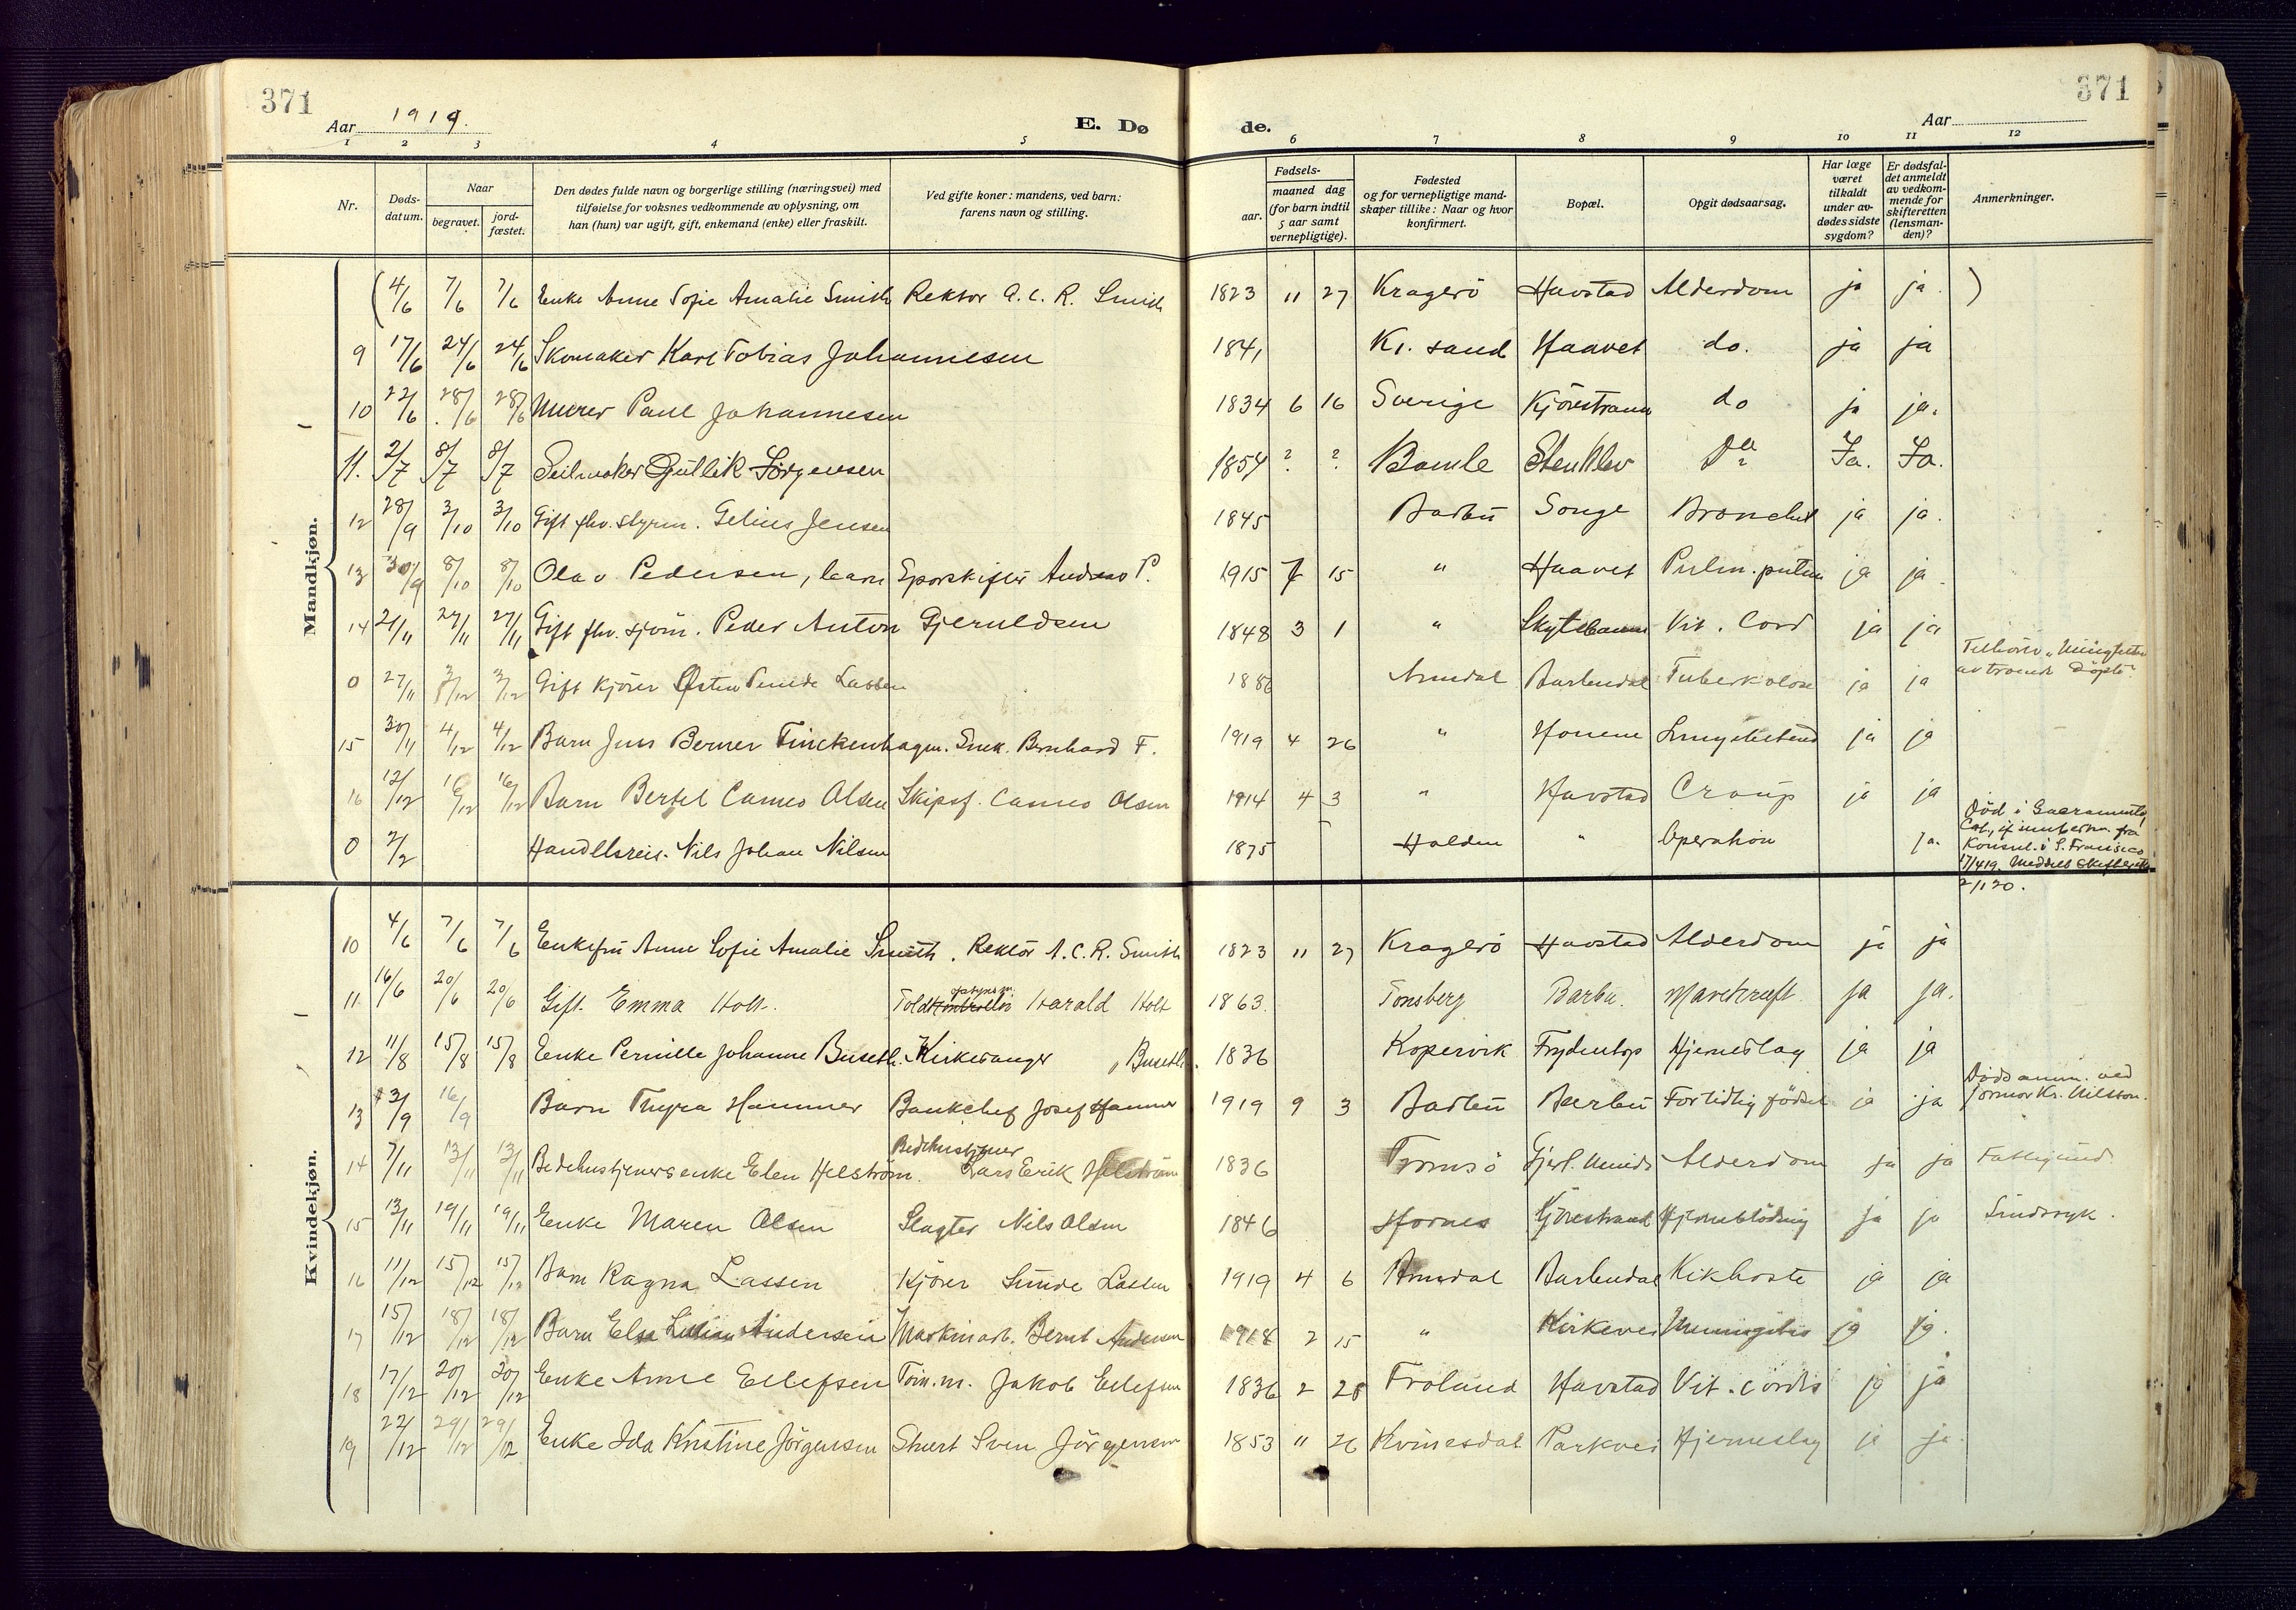 371
371
Aar 1919.
E. Dø
de.
Aar
1 2 3 4 5 6 7 8 9 10 11 12
Nr.
Døds-
datum.
Naar
begravet.
jord-
fæstet.
Den dødes fulde navn og borgerlige stilling (næringsvei) med
tilføielse for voksnes vedkommende av oplysning, om
han (hun) var ugift, gift, enkemand (enke) eller fraskilt.
Ved gifte koner: mandens, ved barn:
farens navn og stilling.
Fødsels-
aar.
maaned dag
(for barn indtil
5 aar samt
vernepligtige).
Fødested
og for vernepligtige mand-
skaper tillike: Naar og hvor
konfirmert.
Bopæl.
Opgit dødsaarsag.
Har læge
været
tilkaldt
under av-
dødes sidste
sygdom?
Er dødsfal-
det anmeldt
av vedkom-
mende for
skifteretten
(lensman-
den)?
Anmerkninger.
Mandkjøn.
(4/6 7/6 7/6 Enke Anne Sofie Amalie Smith Rektor A. C. R. Smith 1823 11 27 Kragerö Havstad Alderdom ja ja )
9 17/6 24/6 24/6 Skomaker Karl Tobias Johannesen 1841 Kr. sand Haavet do. ja ja
10 22/6 28/6 28/6 Murer Paul Johannesen 1834 6 16 Sverige Kjörestrann do ja ja.
11. 2/7 8/7 8/7 Seilmaker Gullik Jörgensen 1854 ? ? Bamle Stenklev Ja. Ja.
12 28/9 3/10 3/10 Gift fhv. styrm. Gelius Jensen 1845 Barbu Songe Bronchit ja ja.
13 30/9 8/10 8/10 Olav Pedersen, barn Sporskifter Andreas P. 1915 7 15 " Haavet Pulm. ja ja.
14 21/11 27/11 27/11 Gift fhv. sjöm. Peder Anton Gjeruldsen 1848 3 1 " Vit. Cord ja ja
0 27/11 3/12 3/12 Gift kjörer Östen Sunde Lassen 1886 Arendal Barbudal Tuberkulose ja ja
av troende Döpte"
15 30/11 4/12 4/12 Barn Jens Berner Finckenhagen. Snek. Bernhard F. 1919 4 26 " ja ja
16 12/12 16/12 16/12 Barn Bertel Cameo Olsen Skipsf. Cameo Olsen 1914 4 3 " Havstad Croup ja ja
0 2/2 Handelsreis. Nils Johan Nilsen 1875 Halden " Operation ja.
Död i Sacramento,
Cal., if fra
Konsul. i S. Francisco
17/4 19. Meddelt Skifteretten
2/1 20.
Kvindekjøn.
10 4/6 7/6 7/6 Enkefru Anne Sofie Amalie Smith. Rektor A. C. R. Smith 1823 11 27 Kragerö Havstad Alderdom ja ja
11. 16/6 20/6 20/6 Gift. Emma Holt. Toldkontrollör Harald Holt 1863. Tonsberg Barbu. Mavekreft. ja ja.
opsynsm.
12 11/8 15/8 15/8 Enke Pernille Johanne Buseth. Kirkesanger Buseth. 1836 Kopervik Hjerneslag ja ja
13 3/9 16/9 Barn Thyra Hammer Bankchef Josef Hammer 1919 9 3 Barbu Barbu For tidlig födsel ja ja
Dödsanm. ved
Jormor Kr. Nilsson.
14 7/11 13/11 13/11 Bedehustjenersenke Elen Helström. Bedehustjener Lars Erik Helström 1836 Tromsö Alderdom ja ja
15 13/11 19/11 19/11 Enke Maren Olsen Slagter Nils Olsen 1846 Hornes Kjörestrand Hjerneblödning ja ja Sindssyk.
16 11/12 15/12 15/12 Barn Ragna Lassen Kjörer Sunde Lassen 1919 4 6 Arendal Barbudal Kikhoste ja ja
17 15/12 18/12 18/12 Barn Elsa Lilian Andersen Maskinarb. Bernt Andersen 1918 2 15 " Kirkevei Meningitis ja ja.
18 17/12 20/12 20/12 Enke Anne Ellefsen Töm.m. Jakob Ellefsen 1836 2 28 Froland Havstad Vit. cordis ja ja
19 22/12 29/12 29/12 Enke Ida Kristine Jörgensen Stuert Sven Jörgensen 1853 11 26 Kvinesdal Parkvei Hjerneslag ja ja.